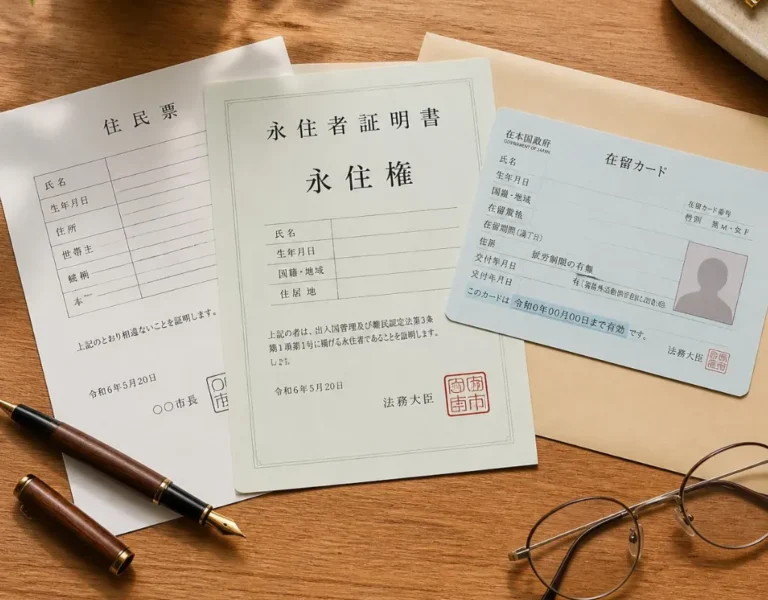 住民票
氏名
生年月日
住所
世帯主
続柄
上記のとおり相違ないことを証明します。
令和6年5月20日
〇〇市長
永住者証明書
永住権
氏名
生年月日
国籍・地域
住居地
上記の者は、出入国管理及び難民認定法第3条
第1項第1号に掲げる永住者であることを証明します。
令和6年5月20日
法務大臣
在本国政府
GOVERNMENT OF JAPAN
在留カード
氏名
生年月日
国籍・地域
在留資格
在留期間(満了日)
住居
在留カード番号
性別
就労制限の有無
交付年月日
交付年月日
このカードは 令和0年00月00日まで有効 です。
法務大臣